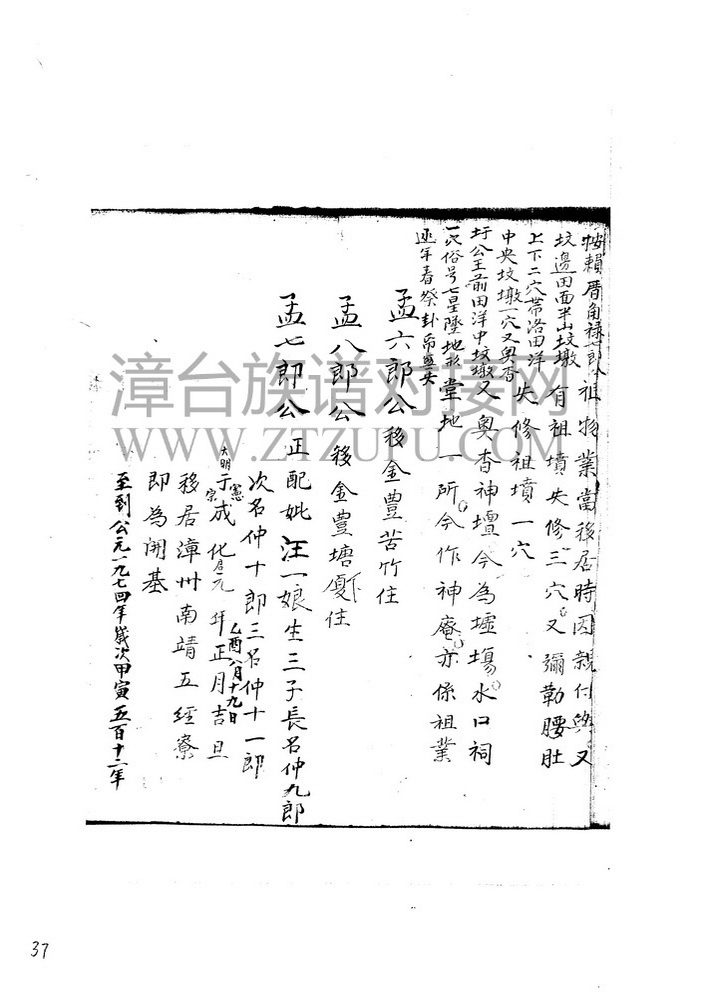 按賴厝角祿七郎公祖物業當移居時因親付與又
坟邊田面半山坟墩有祖墳失修三穴又彌勒腰肚
上下二穴帶洛田洋失修祖墳一穴
中央坟墩一穴又奥杳
圩公王前田洋中坟墩又奥杳神壇今為墟場水口祠
一穴俗号七星墜地形堂地一所今作神庵亦係祖業
逐年春祭卦帋
孟六郎公移金豊苦竹住
孟八郎公移金豊塘廈住
孟七郎公正配妣汪一娘生三子長名仲九郎
次名仲十郎三名仲十一郎
大明憲宗于成化元年正月吉旦
乙酉八月十九日
移居漳州南靖五經寮
即為開基
至到公元一九七四年歲次甲寅五百十二年
漳台族谱对接网
WWW.ZTZUPU.COM
37